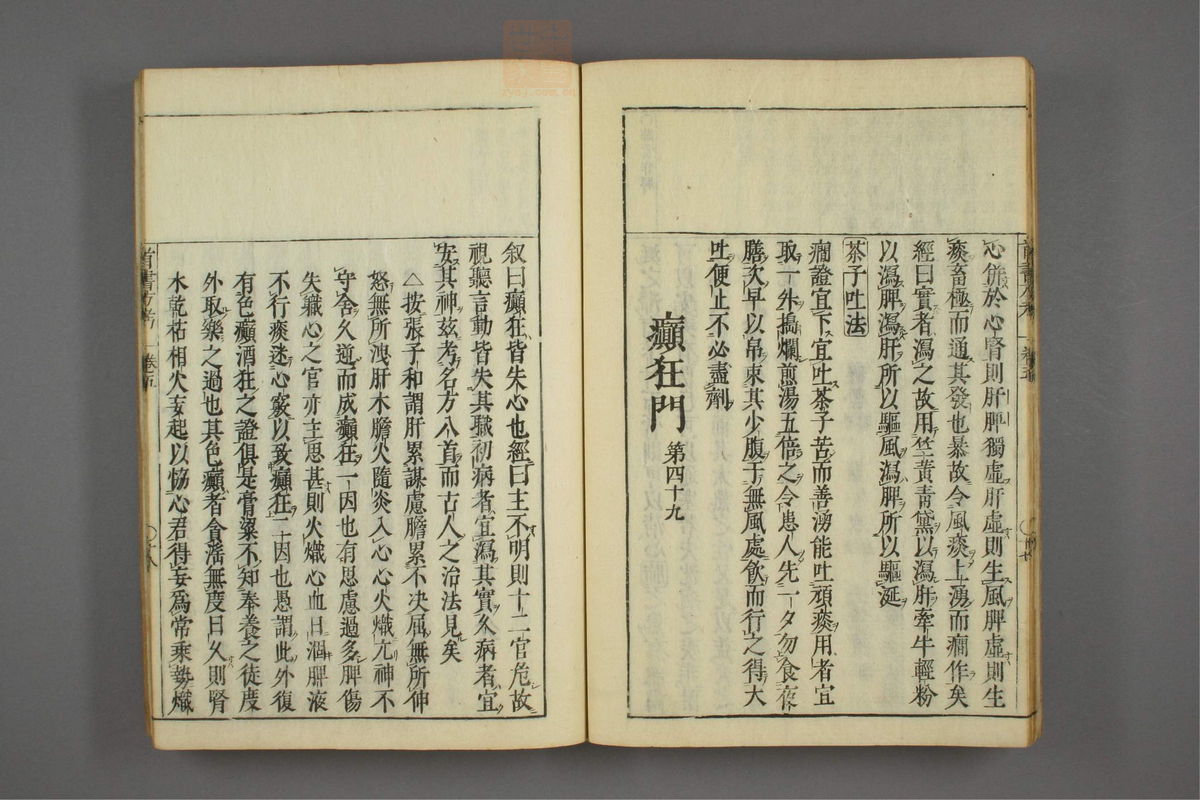 心併於心腎則肝脾獨虛肝虛則生風脾虛則生
痰畜極而通其發也暴故令風痰上湧而癇作矣
經曰實者瀉之故用竺黃青黛以瀉肝牽牛輕粉
以瀉脾瀉肝所以驅風瀉脾所以驅涎
茶子吐法
癇證宜下宜吐茶子苦而善湧能吐頑痰用者宜
取一升搗爛煎湯五倍之令患人先一夕勿食夜
膳次早以帛束其少腹于無風處飲而行之得大
吐便止不必盡劑
癲狂門 第四十九
叙曰癲狂皆失心也經曰主不明則十二官危故
視聽言動皆失其職初病者宜瀉其實久病者宜
安其神玆考名方八首而古人之治法見矣
△按張子和謂肝累謀慮膽累不决屈無所伸
怒無所洩肝木膽火隨炎入心心火熾亢神不
守舍久逆而成癲狂一因也有思慮過多脾傷
失職心之官亦主思甚則火熾心血日涸脾液
不行痰迷心竅以致癲狂二因也愚謂此外復
有色癲酒狂之證俱是膏粱不知奉養之徒度
外取樂之過也其色癲者貪滛無度日久則腎
水乾枯相火妄起以恊心君得妄爲常乘勢熾
首書方考 卷五